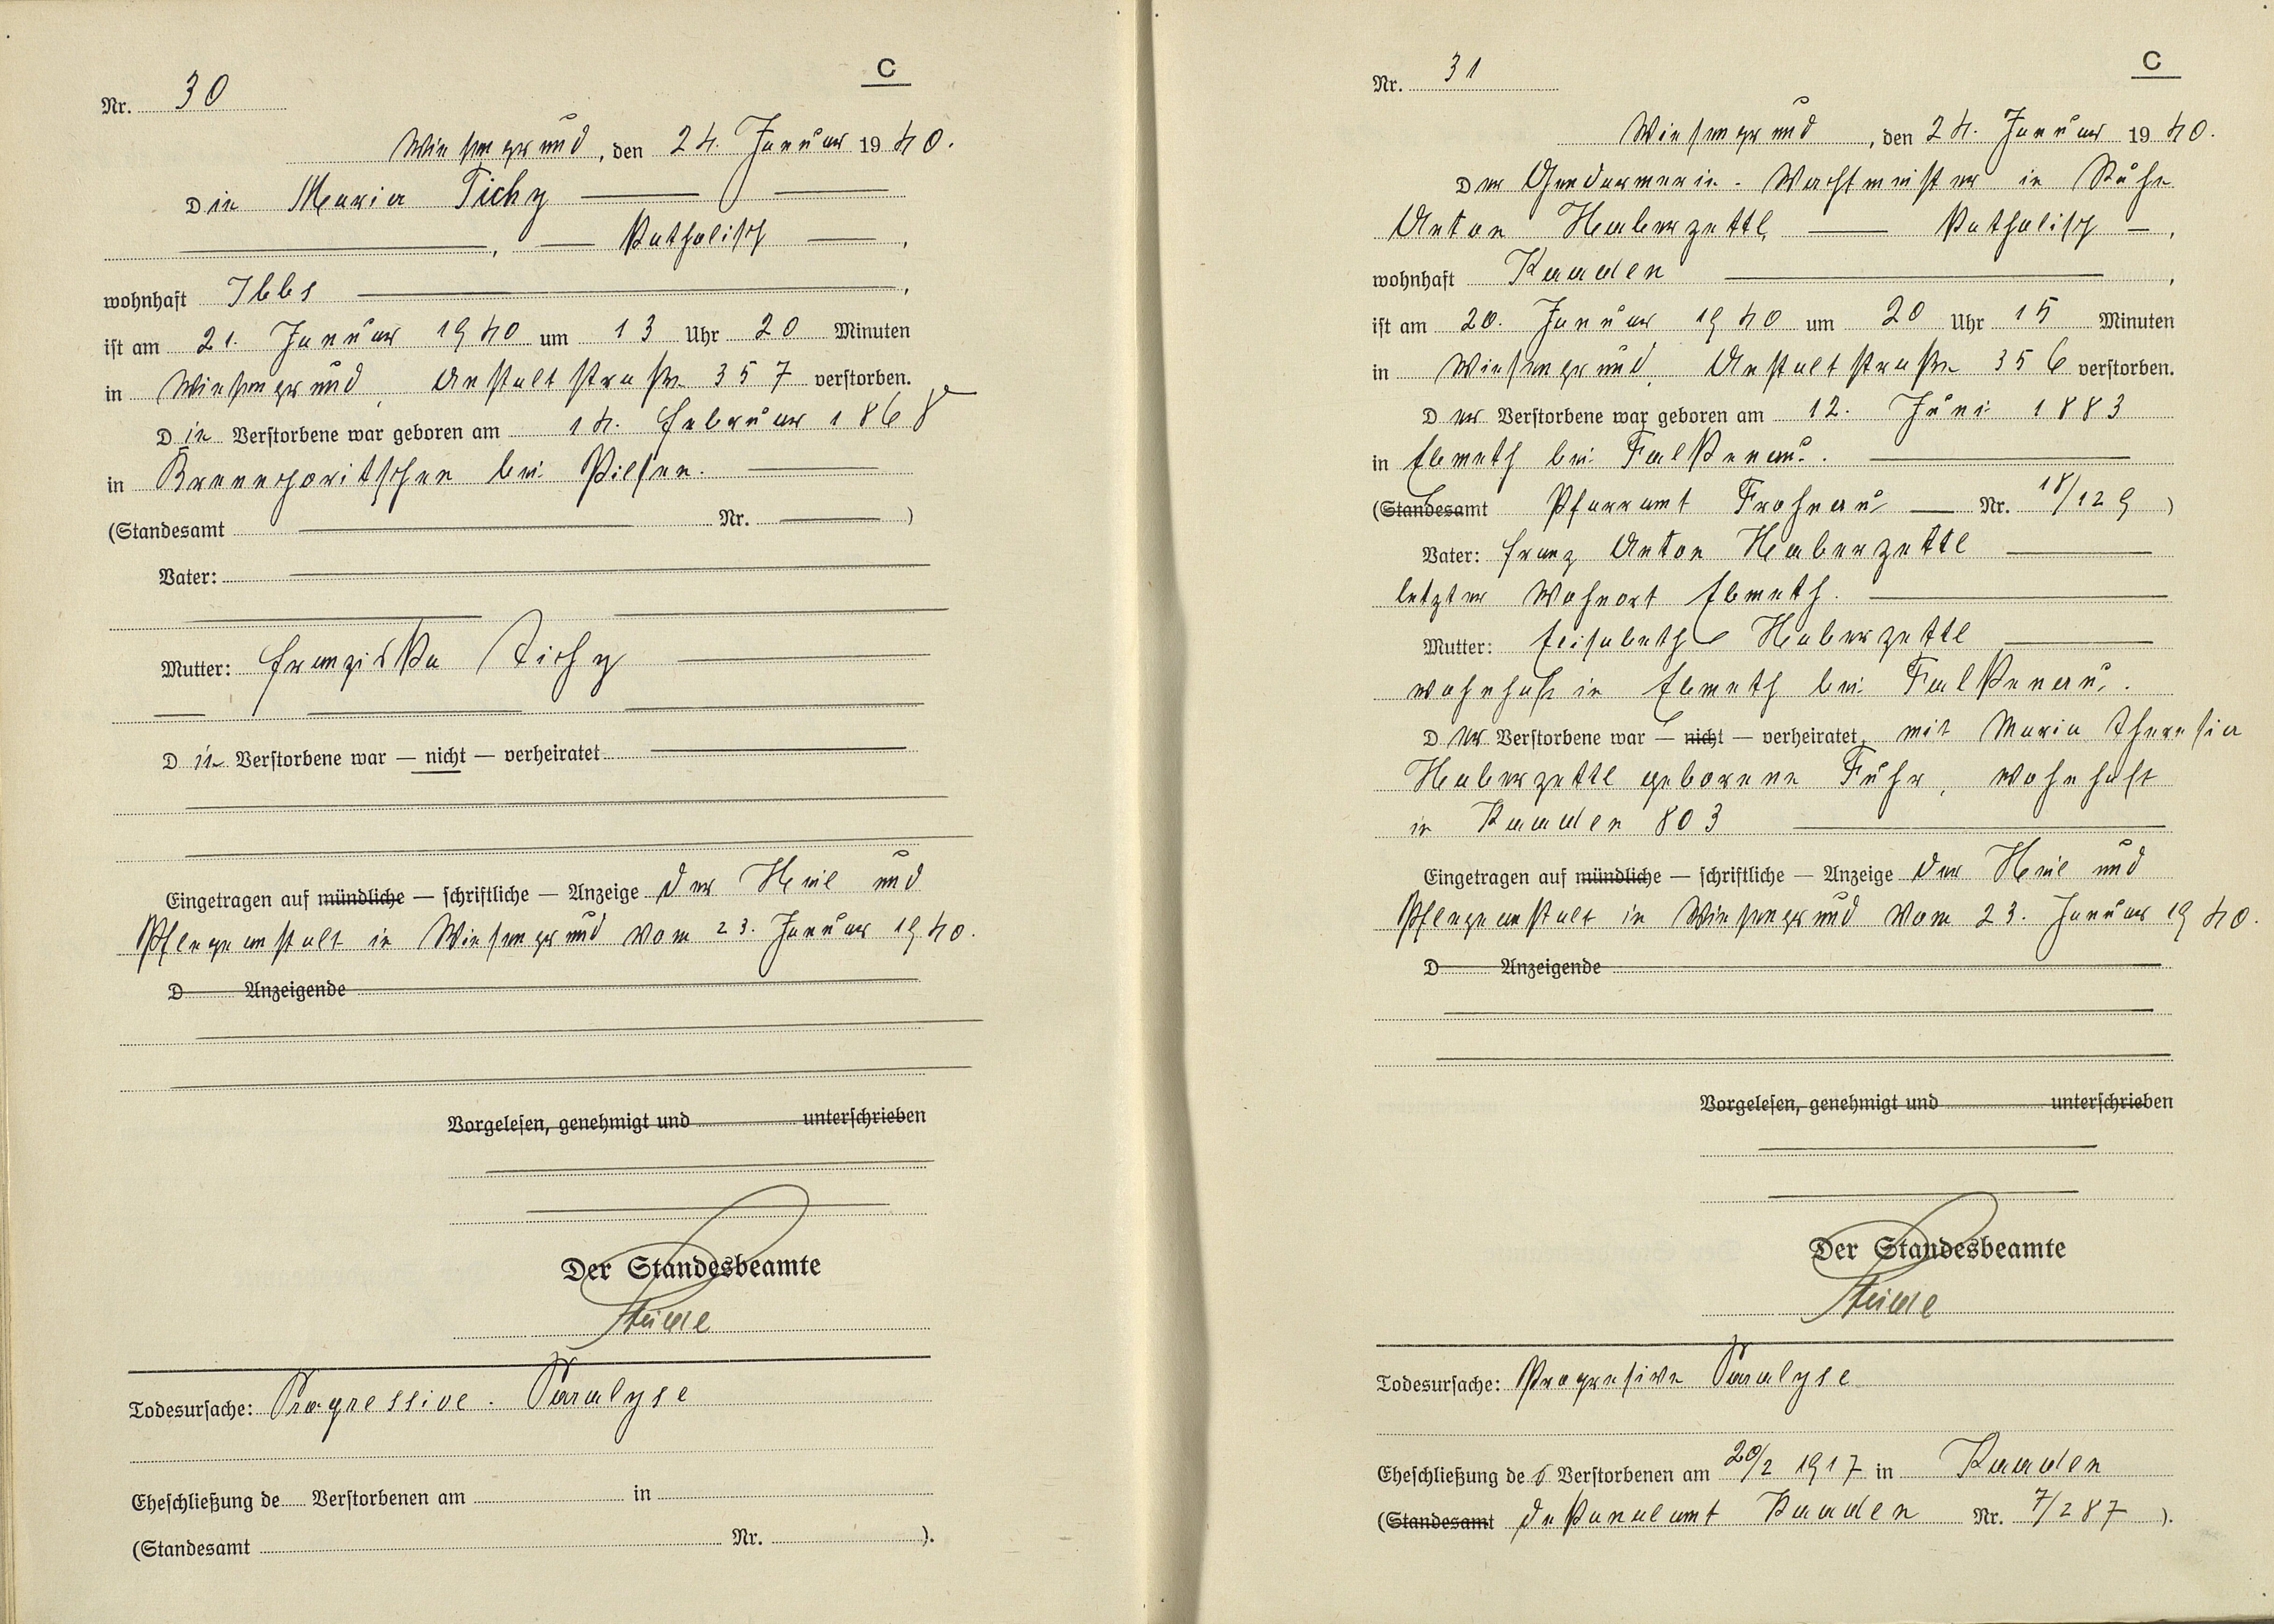 C
Nr. 30
Wiesengrund, den 24. Januar 1940.
Die Maria Tichy
, Katholisch ,
wohnhaft Ibbs ,
ist am 21. Januar 1940 um 13 Uhr 20 Minuten
in Wiesengrund, Anstaltstraße 357 verstorben.
Die Verstorbene war geboren am 14. Februar 1868
in bei Pilsen.
(Standesamt Nr. )
Vater:
Mutter: Franziska Tichy
Die Verstorbene war — nicht — verheiratet
Eingetragen auf mündliche — schriftliche — Anzeige der Heil und
Pflegeanstalt in Wiesengrund vom 23. Januar 1940.
D Anzeigende
Vorgelesen, genehmigt und unterschrieben
Der Standesbeamte
Todesursache: Progressive. Paralyse
Eheschließung de Verstorbenen am in
(Standesamt Nr. ).
C
Nr. 31
Wiesengrund, den 24. Januar 1940.
Der Gendarmerie-Wachtmeister in Ruhe
Anton Haberzettl, Katholisch ,
wohnhaft Kaaden ,
ist am 20. Januar 1940 um 20 Uhr 15 Minuten
in Wiesengrund, Anstaltstraße 356 verstorben.
Der Verstorbene war geboren am 12. Juni 1883
in Ebmeth bei Falkenau.
(Standesamt Pfarramt Frohnau Nr. 18/129 )
Vater: Franz Anton Haberzettl
letzter Wohnort Ebmeth.
Mutter: Elisabeth Haberzettl
wohnhaft in Ebmeth bei Falkenau.
Der Verstorbene war — nicht — verheiratet, mit Maria Theresia
Haberzettl geborene Fuhr, wohnhaft
in Kaaden 803
Eingetragen auf mündliche — schriftliche — Anzeige der Heil und
Pflegeanstalt in Wiesengrund vom 23. Januar 1940.
D Anzeigende
Vorgelesen, genehmigt und unterschrieben
Der Standesbeamte
Todesursache: Progresive Paralyse
Eheschließung des Verstorbenen am 20/2 1917 in Kaaden
(Standesamt Dekanalamt Kaaden Nr. 7/287 ).